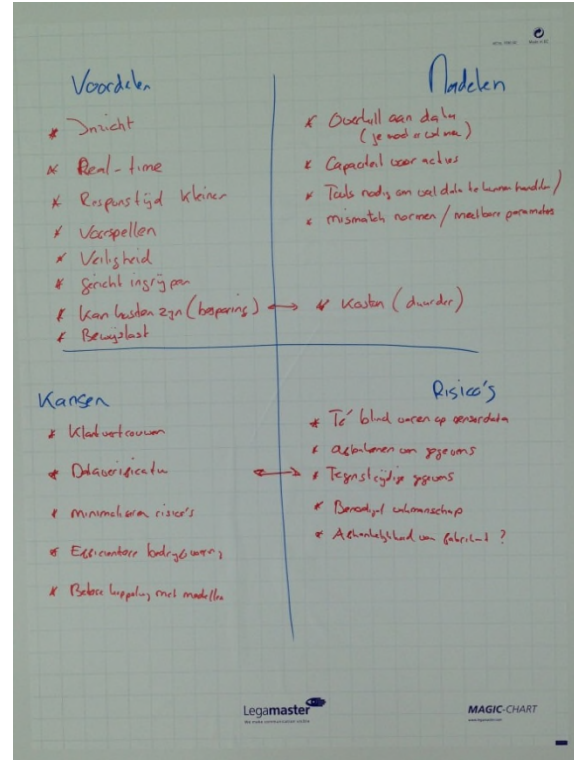 Voordelen
* Inzicht
* Real-time
* Responstijd kleiner
* Voorspellen
* Veiligheid
* gericht ingrijpen
* Kan kosten zijn (besparing)
* Bewijslast
Nadelen
* Overkill aan data
(je
* Capaciteit voor acties
* Tools nodig om veel data te kunnen handlen /
* mismatch normen / meetbare parameters
* Kosten (duurder)
Kansen
* Klantvertrouwen
* Dataverificatie
* minimaliseren risico's
* Efficientere bedrijfsvoering
* Betere koppeling met modellen
Risico's
* Té blind varen op sensordata
* van gegevens
* Tegenstrijdige gegevens
* Benodigd vakmanschap
* Afhankelijkheid van fabrikant ?
Legamaster
MAGIC-CHART